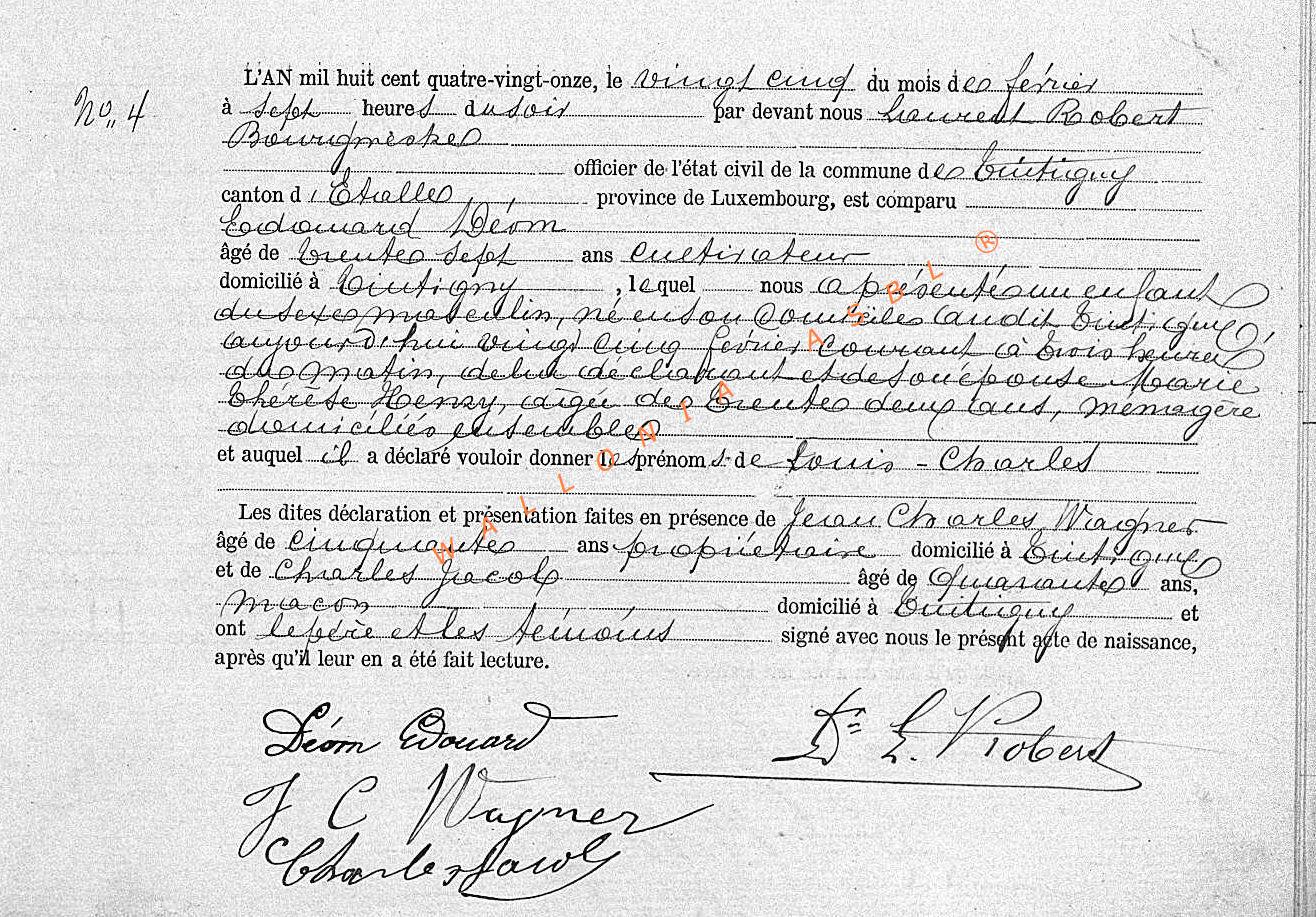 No. 4
L'AN mil huit cent quatre-vingt-onze, le vingt cinq du mois de février
à sept heures du soir par devant nous Laurent Robert
Bourgmestre
officier de l'état civil de la commune de Tintigny
canton d'Etalle, province de Luxembourg, est comparu
Edouard Déom
âgé de trente sept ans cultivateur
domicilié à Tintigny, lequel nous a présenté un enfant
du sexe masculin, né en son domicile audit Tintigny
aujourd'hui vingt cinq février courant à trois heures
du matin, de lui déclarant et de son épouse Marie
Thérèse Henry, âgée de trente deux ans, ménagère
domiciliés ensemble
et auquel il a déclaré vouloir donner les prénoms de Louis - Charles
Les dites déclaration et présentation faites en présence de Jean Charles Wagner
âgé de cinquante ans propriétaire domicilié à Tintigny
et de Charles Jacob âgé de quarante ans,
macon domicilié à Tintigny et
ont le père et les témoins signé avec nous le présent acte de naissance,
après qu'il leur en a été fait lecture.
Déom Edouard
Dr L. Robert
J C Wagner
Charles Jacob
WALLONIA ASBL ®